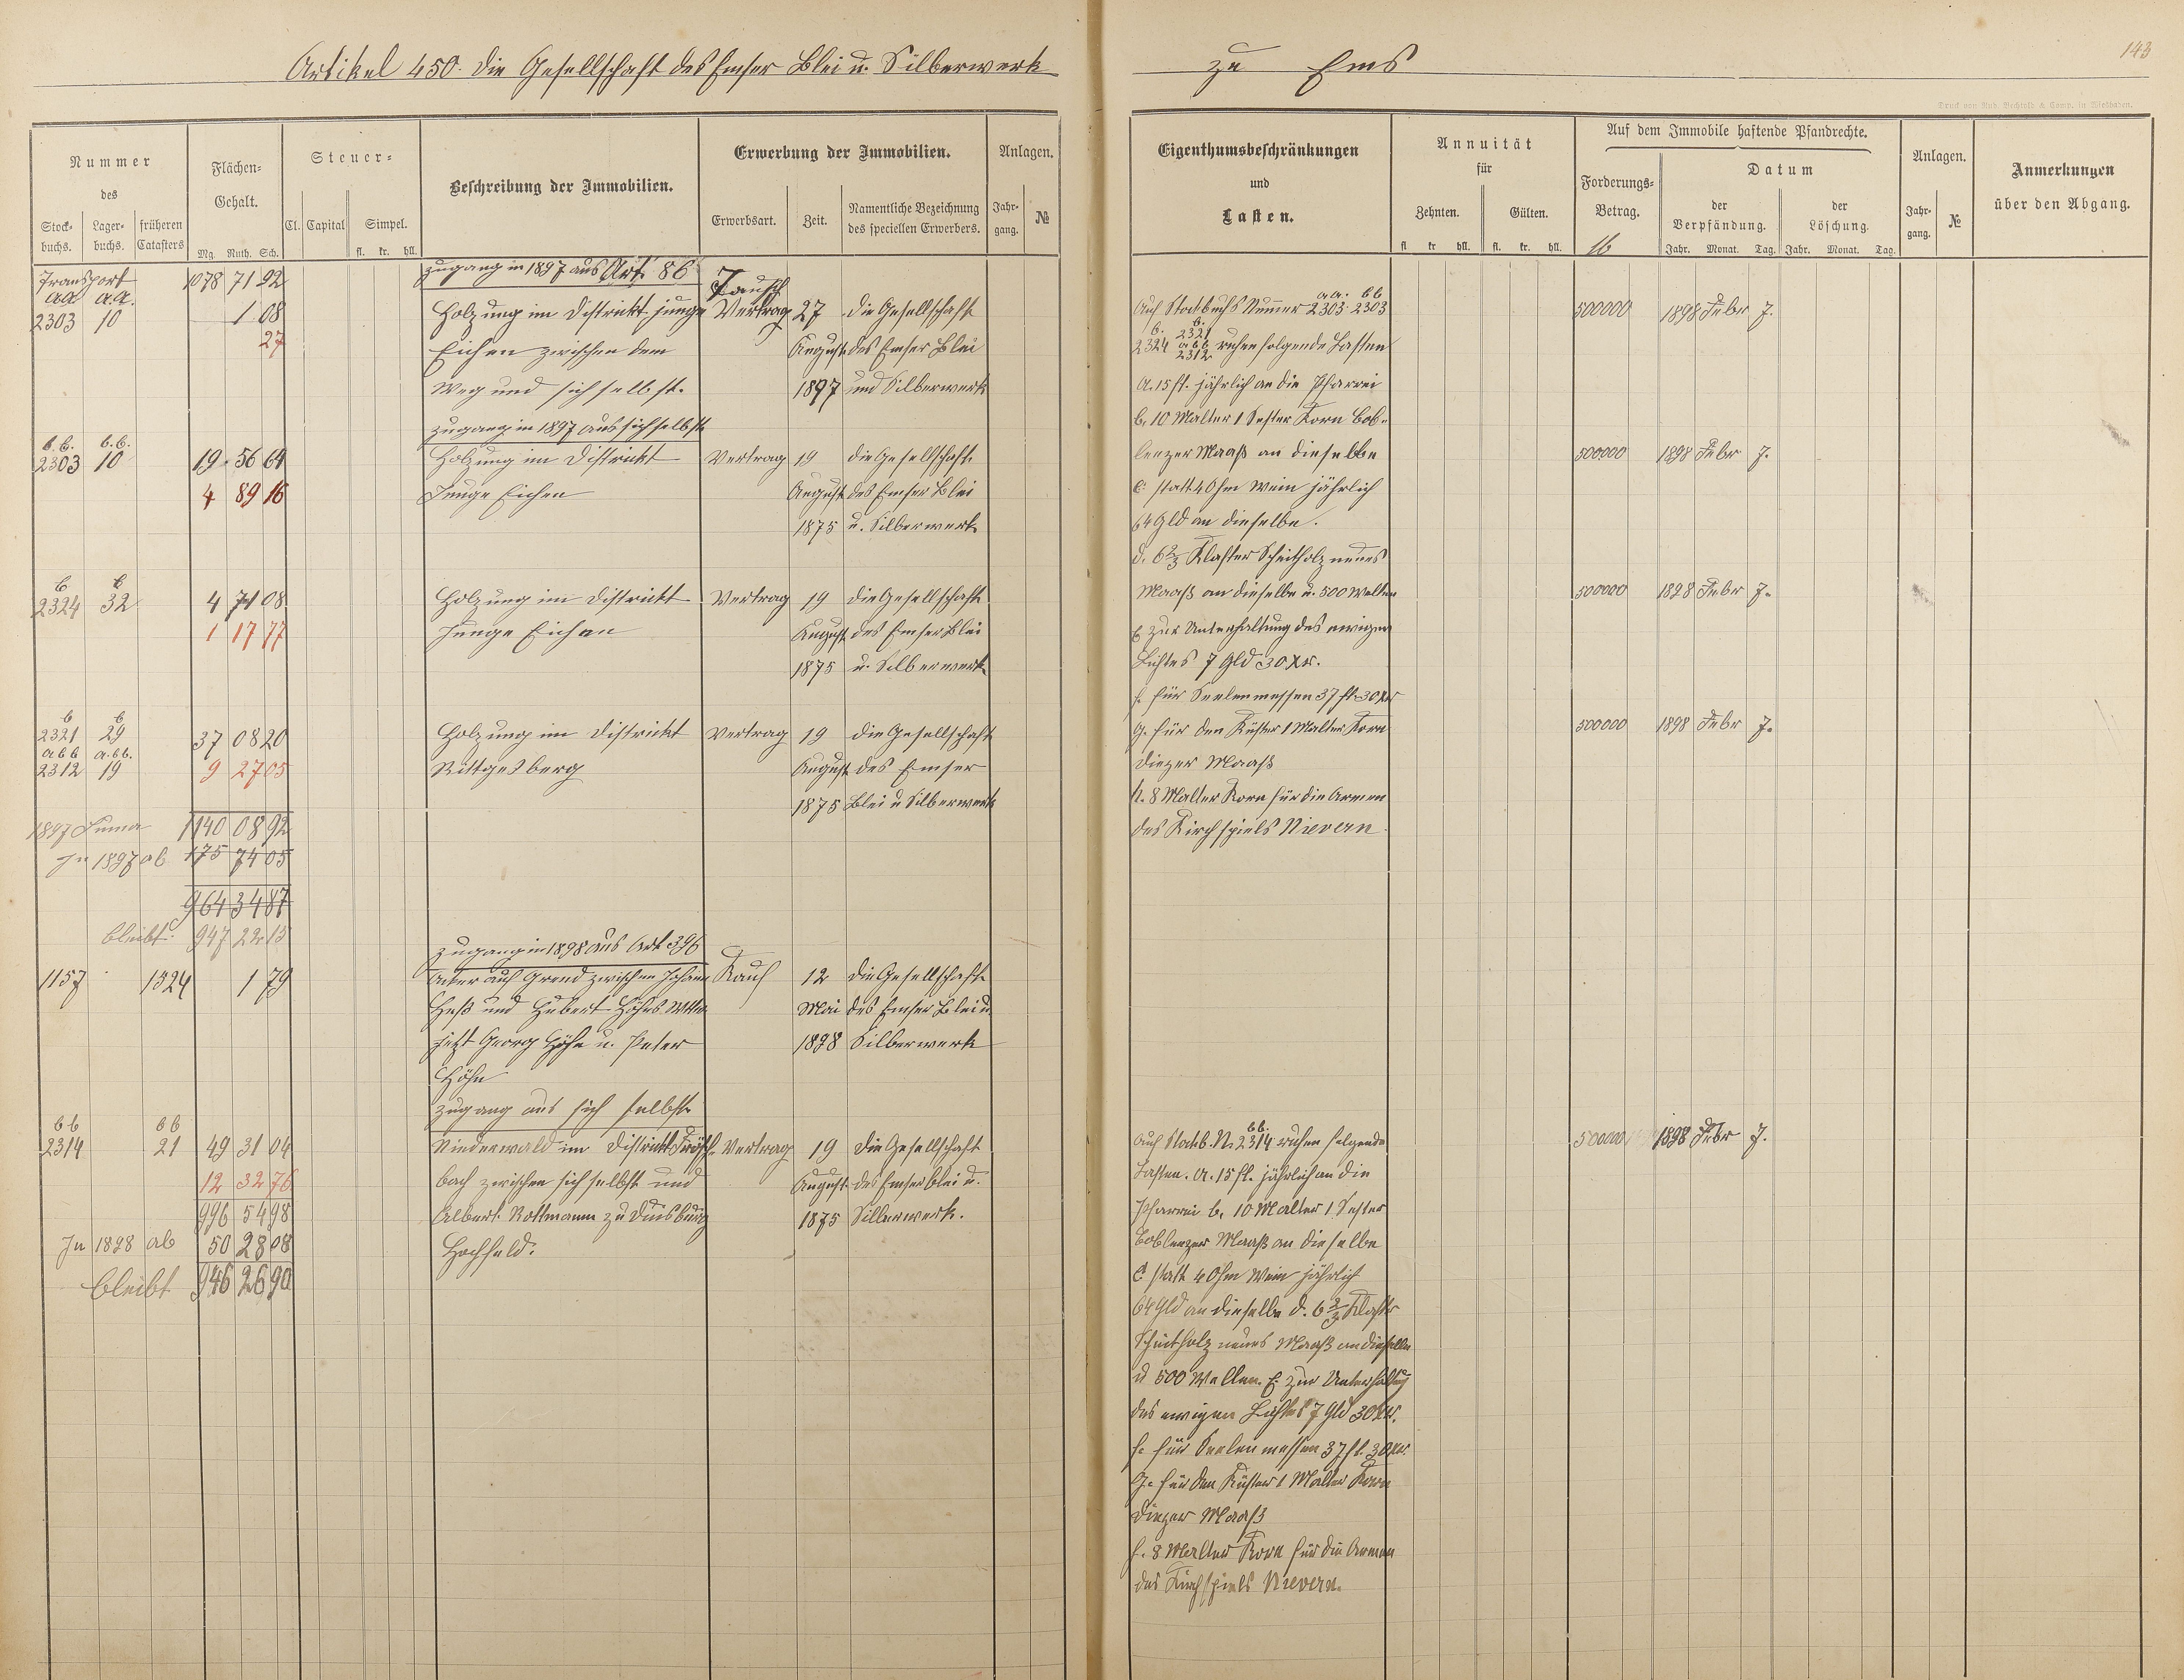 Artikel 450. Die Gesellschaft des Emser Blei u. Silberwerk zu Ems
143
Druck von Rud. Bechtold & Comp. in Wiesbaden.
Nummer des
Stock-buchs. Lager-buchs. früheren Catasters
Flächen-Gehalt.
Mg. Ruth. Sch.
Steuer-
Cl. Capital Simpel.
fl. kr. hll.
Beschreibung der Immobilien.
Erwerbung der Immobilien.
Erwerbsart. Zeit. Namentliche Bezeichnung des speciellen Erwerbers.
Anlagen.
Jahr-gang. №
Eigenthumsbeschränkungen und Lasten.
Annuität für
Zehnten. Gülten.
fl. kr. hll. fl. kr. hll.
Auf dem Immobile haftende Pfandrechte.
Forderungs-Betrag.
Datum
der Verpfändung. der Löschung.
Jahr. Monat. Tag. Jahr. Monat. Tag.
Anlagen.
Jahr-gang. №
Anmerkungen über den Abgang.
Transport 1078 71 92
Zugang in 1897 aus Art. 86
Tausch
aa a.a.
2303 10 1 08 Holzung im Distrikt junge Vertrag 27 die Gesellschaft
27 Eichen zwischen dem August des Emser Blei
Weg und sich selbst. 1897 und Silberwerk
Zugang in 1897 aus sich selbst
b.b. b.b.
2303 10 19 56 64 Holzung im Distrikt Vertrag 19 die Gesellschaft
4 89 16 Junge Eichen August des Emser Blei
1875 u. Silberwerk
b b
2324 32 4 71 08 Holzung im Distrikt Vertrag 19 die Gesellschaft
1 17 77 Junge Eichen August des Emser Blei
1875 u. Silberwerk
b b
2321 29 37 08 20 Holzung im Distrikt Vertrag 19 die Gesellschaft
abb a.bb.
2312 19 9 27 05 Rittgesberg August des Emser
1875 Blei u Silberwerk
1897 Suma 1140 08 92
In 1897 ab 175 74 05
964 34 87
bleibt 947 22 15
Zugang in 1898 aus Art 396
1157 1324 1 79 Acker auf Grend zwischen Johann Kauf 12 die Gesellschaft
Heß und Hubert Höhns Wttw. Mai des Emser Blei u.
jetzt Georg Höhn u. Peter 1898 Silberwerk
Höhn
Zugang aus sich selbst
bb bb
2314 21 49 31 04 Niederwald im Distrikt Frösch- Vertrag 19 die Gesellschaft
12 32 76 bach zwischen sich selbst und August des Emser Blei u.
996 54 98 Albert Rottmann zu Duisburg 1875 Silberwerk.
In 1898 ab 50 28 08 Hochfeld.
bleibt 946 26 90
aa. bb
Auf Stockbuchs Nummer 2303. 2303 500000 1898 Febr 7.
b. b.
2324 2321 abb 2312 ruhen folgende Lasten
a. 15 fl. jährlich an die Pfarrei
b. 10 Malter 1 Sester Korn Cob-
lenzer Maaß an dieselbe 500000 1898 Febr 7.
c. statt 4 Ohm Wein jährlich
64 Gld an dieselbe.
d. 6 2/3 Klafter Scheitholz neues
Maaß an dieselbe u. 500 Wellen 500000 1898 Febr 7.
E zur Unterhaltung des ewigen
Lichtes 7 Gld 30 Xr.
f. für Seelenmessen 37 fl. 30 Xr
g. für den Küster 1 Malter Korn 500000 1898 Febr 7.
Diezer Maaß
h. 8 Malter Korn für die Armen
des Kirchspiels Nievern
bb.
Auf Stockb. N. 2314 ruhen folgende 500000 1898 Febr 7.
Lasten. a. 15 fl. jährlich an die
Pfarrei b. 10 Malter 1 Sester
Coblenzer Maaß an dieselbe
C statt 4 Ohm Wein jährlich
64 Gld an dieselbe d. 6 2/3 Klaftr
Scheitholz neues Maaß an dieselbe
u 500 Wellen. E. zur Unterhaltung
des ewigen Lichtes 7 Gld 30 Xr.
f. für Seelenmessen 37 fl. 30 Xr.
g. für den Küster 1 Malter Korn
Diezer Maaß
h. 8 Malter Korn für die Armen
des Kirchspiels Nievern.